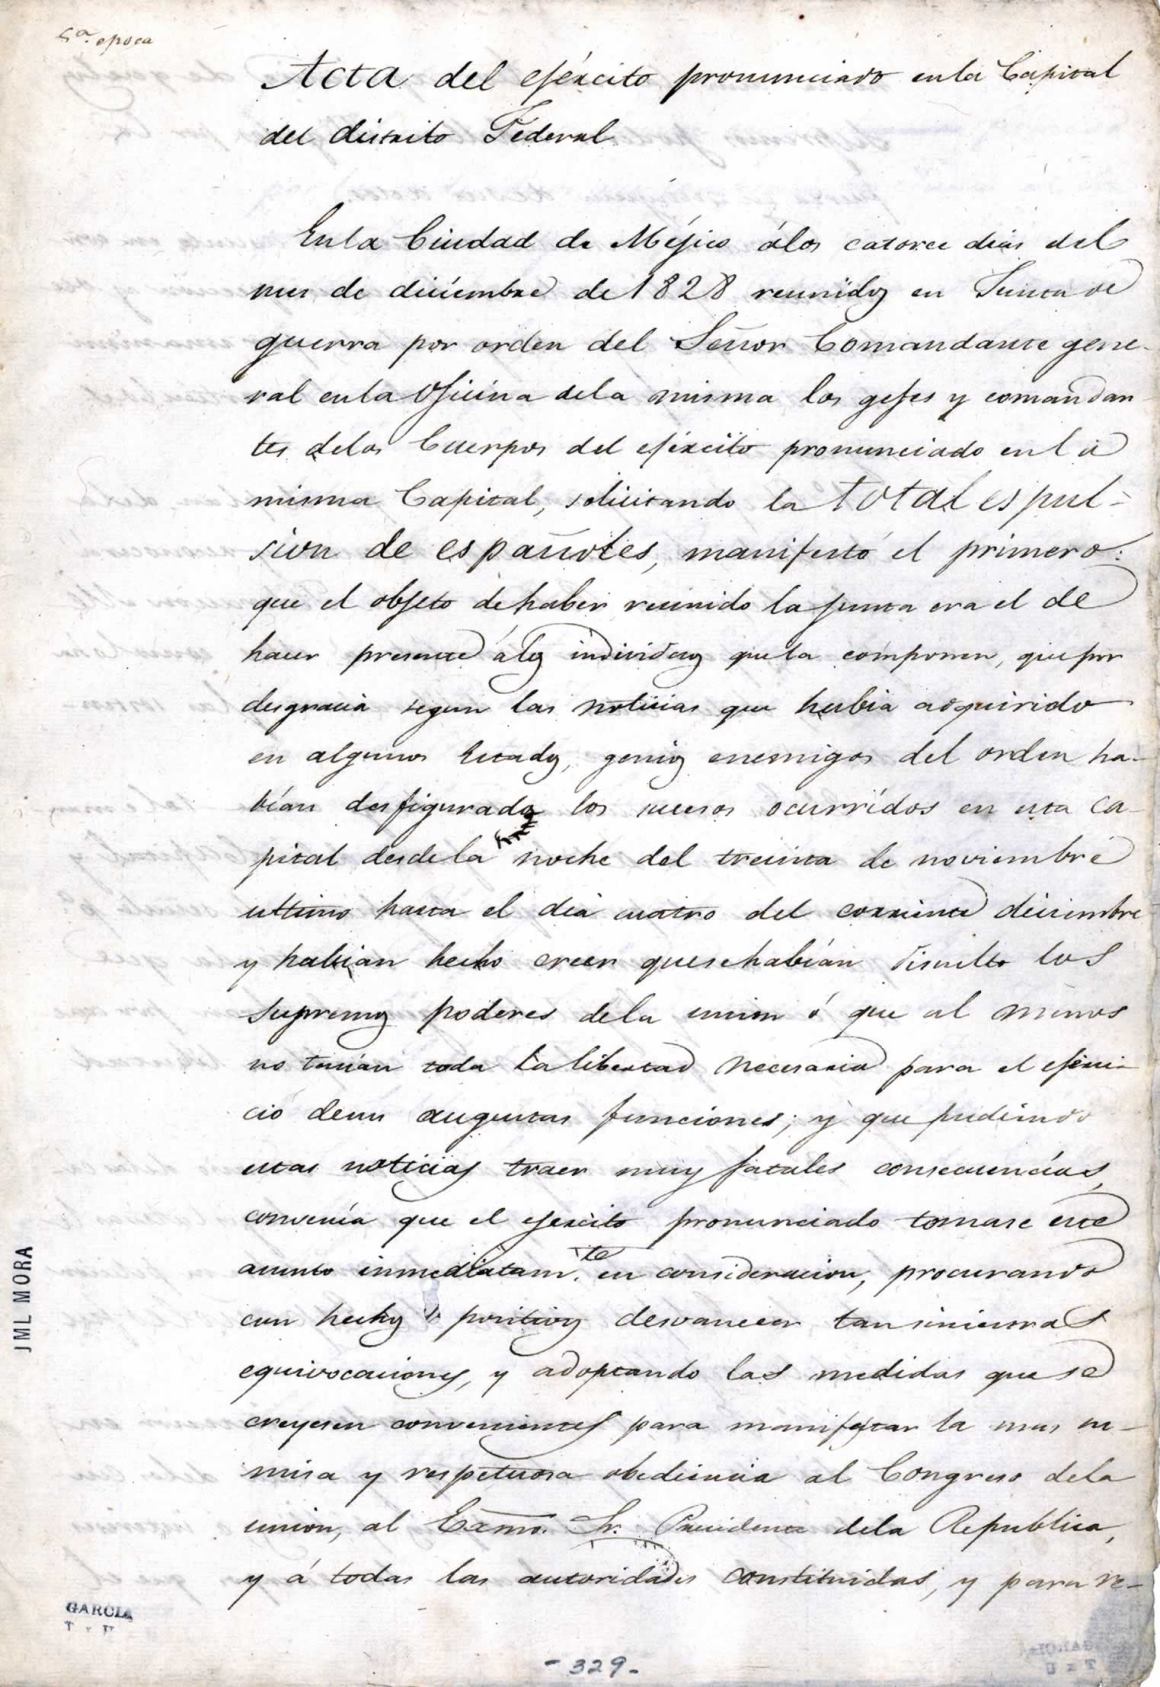 5ª epoca
Acta del ejército pronunciado en la Capital
del distrito Federal.
En la Ciudad de Méjico á los catorce dias del
mes de diciembre de 1828 reunidos en Junta de
guerra por orden del Señor Comandante gene-
ral en la Oficina de la misma los gefes y comandan
tes de los Cuerpos del ejército pronunciado en la
misma Capital, solicitando la total espul-
sion de españoles, manifestó el primero:
que el objeto de haber reunido la junta era el de
hacer presente á los individuos que la componen, que por
desgracia segun las noticias que habia adquirido
en algunos Estados, genios enemigos del orden ha-
bían desfigurado los sucesos ocurridos en esta ca-
pital desde la noche del treinta de noviembre
ultimo hasta el dia cuatro del corriente diciembre
y habian hecho creer que se habían disuelto los
supremos poderes de la union ó que al menos
no tenían toda la libertad necesaria para el ejerci-
cio de sus augustas funciones; y que pudiendo
estas noticias traer muy fatales consecuencias,
convenía que el ejercito pronunciado tomase este
asunto inmediatam.te en consideracion, procurando
con hechos positivos desvanecer tan siniestras
equivocaciones, y adoptando las medidas que se
creyesen convenientes para manifestar la mas su-
misa y respetuosa obediencia al Congreso de la
union, al Exmo. Sr. Presidente de la Republica,
y á todas las autoridades constituidas, y para re-
JML MORA
GARCIA
- 329 -